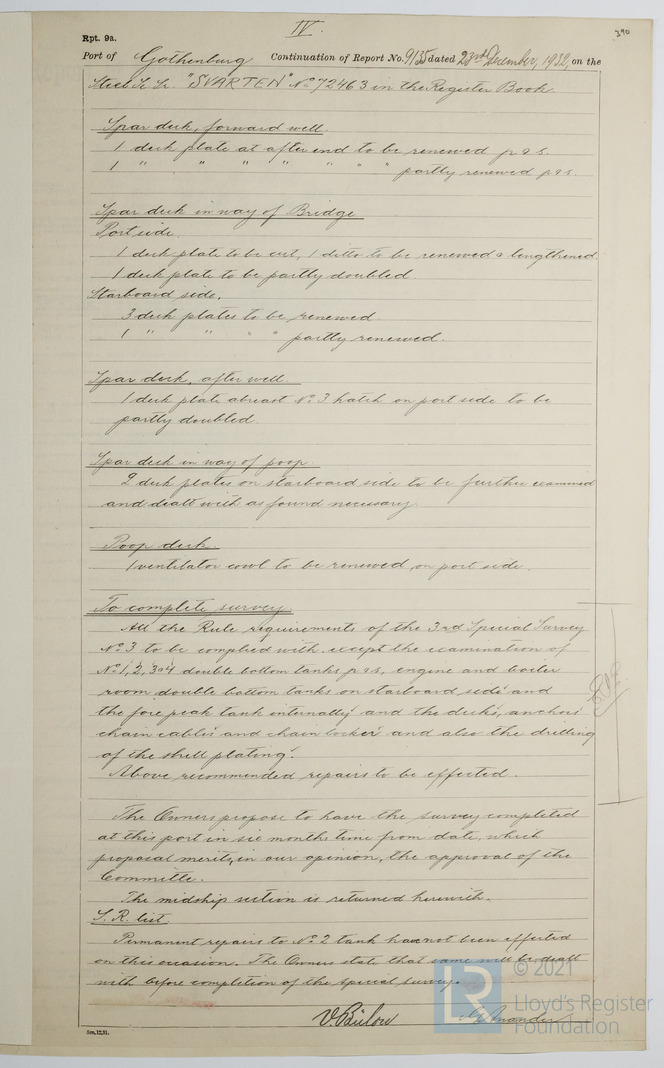 IV.
390
Rpt. 9a.
Port of Gothenburg Continuation of Report No. 9135 dated 23rd December, 1932, on the
Steel Sc Sr. "SVARTEN" No 72463 in the Register Book.
Spar deck, forward well.
1 deck plate at after end to be renewed p & s.
1 " " " " " " " partly renewed p & s.
Spar deck in way of Bridge
Port side.
1 deck plate to be cut, 1 ditto to be renewed & lengthened.
1 deck plate to be partly doubled.
Starboard side.
3 deck plates to be renewed.
1 " " " " partly renewed.
Spar deck, after well.
1 deck plate abreast No. 3 hatch on port side to be
partly doubled.
Spar deck in way of poop.
2 deck plates on starboard side to be further examined
and dealt with as found necessary.
Poop deck.
1 ventilator cowl to be renewed, on port side.
To complete survey.
All the Rule requirements of the 3rd Special Survey
No. 3 to be complied with except the examination of
No. 1, 2, 3 & 4 double bottom tanks p & s, engine and boiler
room double bottom tanks on starboard side and
the fore peak tank internally and the decks, anchors
chain cables and chain locker and also the drilling
of the shell plating.
Above recommended repairs to be effected.
The Owners propose to have the survey completed
at this port in six months time from date, which
proposal merits, in our opinion, the approval of the
Committee.
The midship section is returned herewith.
S. R. list.
Permanent repairs to No. 2 tank have not been effected
on this occasion. The Owners state that same will be dealt
with before completion of the special survey.
V. Bülow
5m,12,31.
© 2021
Lloyd's Register
Foundation
LR